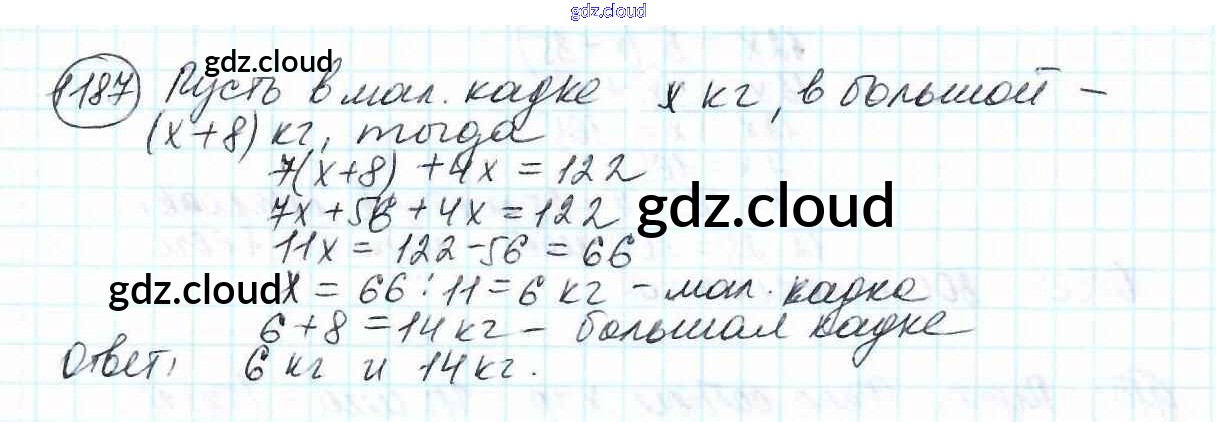 gdz.cloud
gdz.cloud
1187 Пусть в мал. кадке x кг, в большой –
(x+8) кг, тогда
7(x+8) + 4x = 122
7x + 56 + 4x = 122
gdz.cloud
11x = 122 - 56 = 66
gdz.cloud
x = 66 : 11 = 6 кг – мал. кадка
6 + 8 = 14 кг – большая кадке
Ответ: 6 кг и 14 кг.